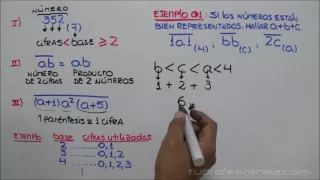 NÚMERO
I) 352(7)
CIFRAS < BASE ≥ 2
II) ab = ab
NÚMERO DE PRODUCTO DE
2 CIFRAS 2 NÚMEROS
III) (a+1)a²(a+5)
1 PARÉNTESIS = 1 CIFRA
EJEMPLO base cifras utilizadas
2 ..... 0,1
3 ..... 0,1,2
4 ..... 0,1,2,3
EJEMPLO 01: SI LOS NÚMEROS ESTÁN
BIEN REPRESENTADOS. HALLAR a+b+c.
1a1(4), bb(c), 2c(a)
b<c<a<4
1+2+3
6